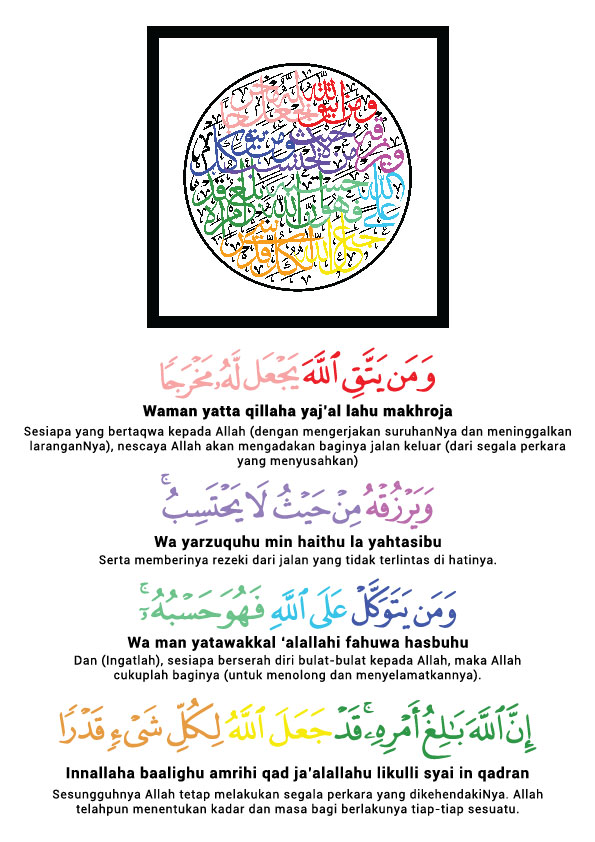 وَمَن يَتَّقِ ٱللَّهَ يَجْعَل لَّهُۥ مَخْرَجًا
Waman yatta qillaha yaj'al lahu makhroja
Sesiapa yang bertaqwa kepada Allah (dengan mengerjakan suruhanNya dan meninggalkan
laranganNya), nescaya Allah akan mengadakan baginya jalan keluar (dari segala perkara
yang menyusahkan)
وَيَرْزُقْهُ مِنْ حَيْثُ لَا يَحْتَسِبُ ۚ
Wa yarzuquhu min haithu la yahtasibu
Serta memberinya rezeki dari jalan yang tidak terlintas di hatinya.
وَمَن يَتَوَكَّلْ عَلَى ٱللَّهِ فَهُوَ حَسْبُهُۥٓ ۚ
Wa man yatawakkal ‘alallahi fahuwa hasbuhu
Dan (Ingatlah), sesiapa berserah diri bulat-bulat kepada Allah, maka Allah
cukuplah baginya (untuk menolong dan menyelamatkannya).
إِنَّ ٱللَّهَ بَٰلِغُ أَمْرِهِۦ ۚ قَدْ جَعَلَ ٱللَّهُ لِكُلِّ شَىْءٍ قَدْرًا
Innallaha baalighu amrihi qad ja’alallahu likulli syai in qadran
Sesungguhnya Allah tetap melakukan segala perkara yang dikehendakiNya. Allah
telahpun menentukan kadar dan masa bagi berlakunya tiap-tiap sesuatu.